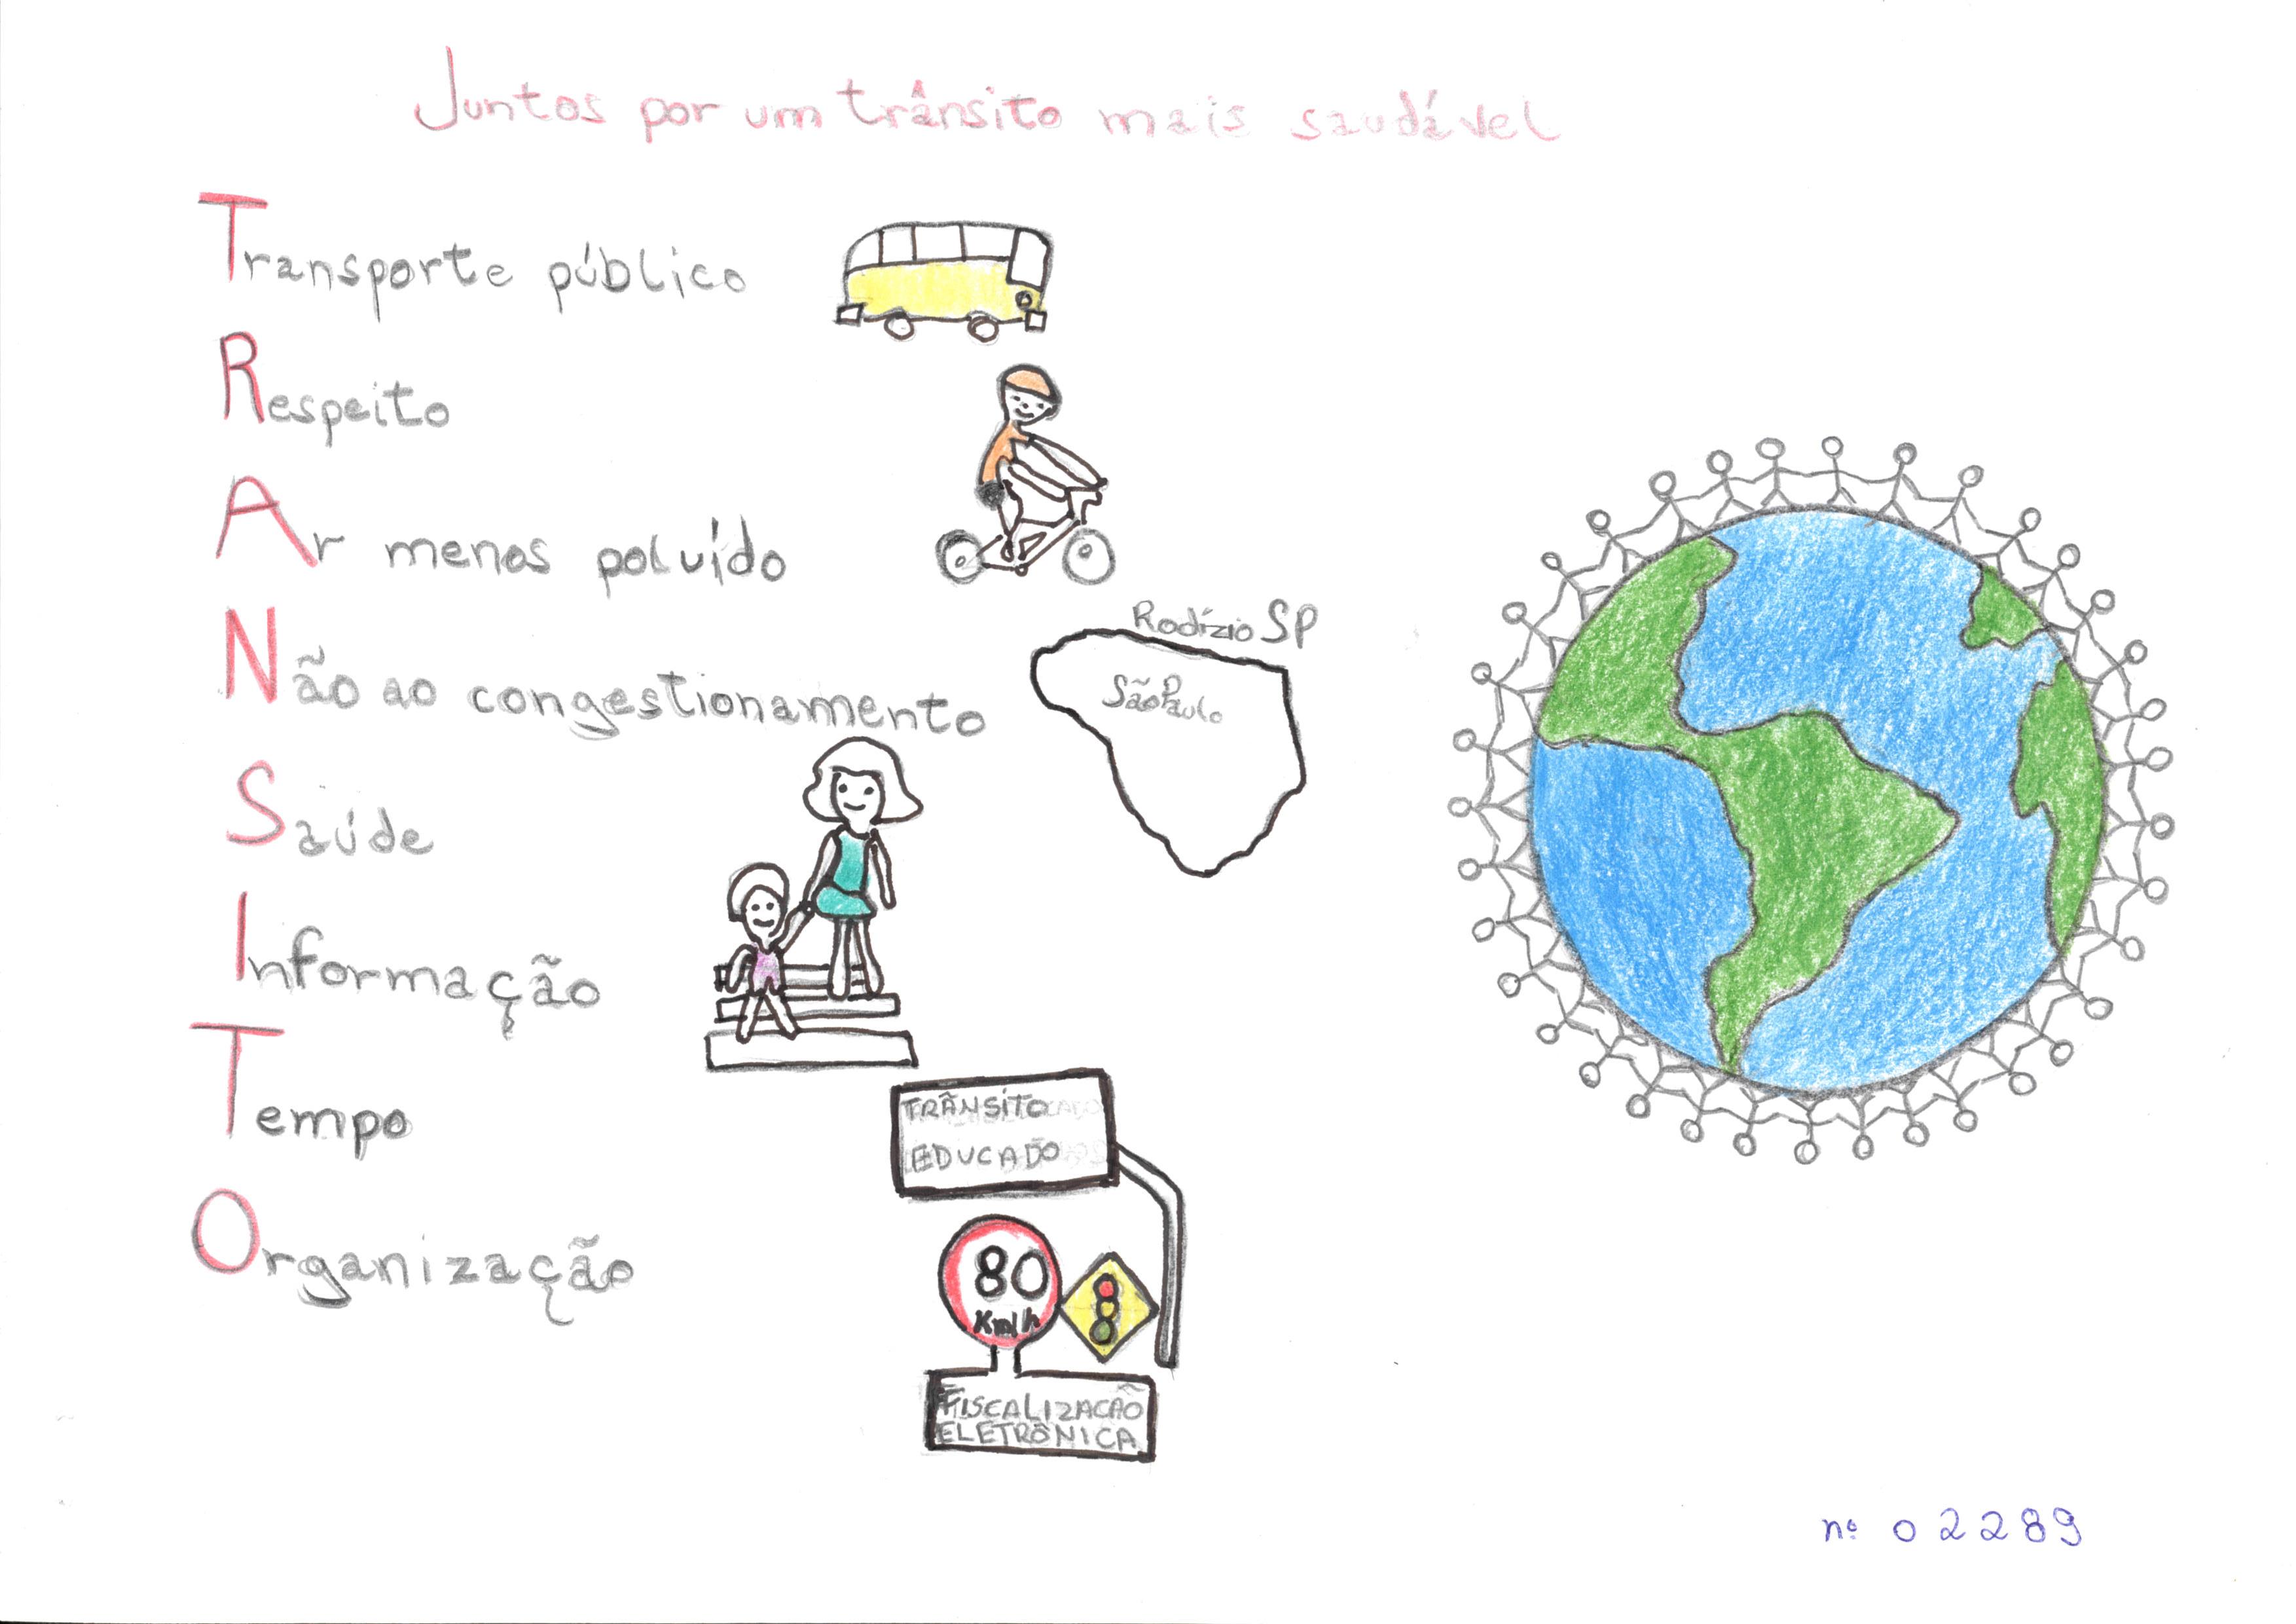 Juntos por um trânsito mais saudável
Transporte público
Respeito
Ar menos poluído
Rodízio SP
Não ao congestionamento
São Paulo
Saúde
Informação
Tempo
TRÂNSITO
EDUCADO
Organização
80
Km/h
FISCALIZACÃO
ELETRÔNICA
nº 02289